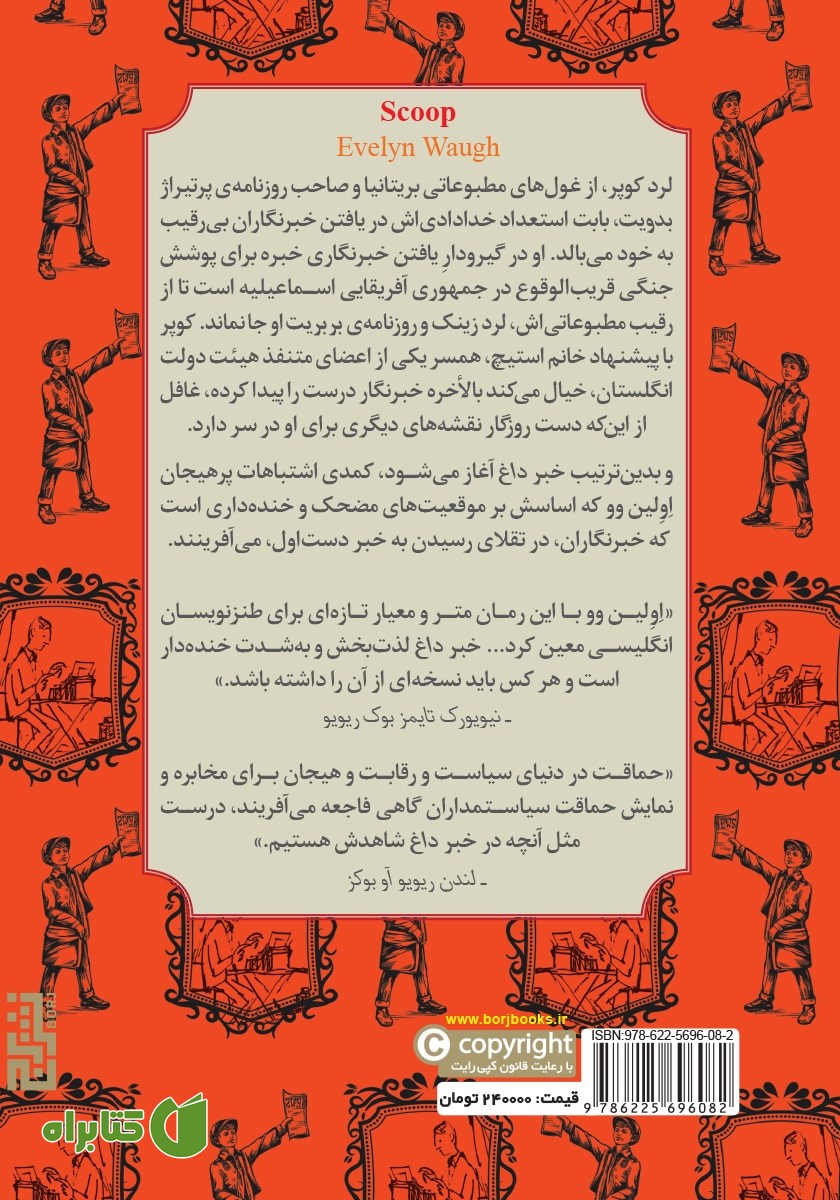 Scoop
Evelyn Waugh
لرد کوپر، از غول‌های مطبوعاتی بریتانیا و صاحب روزنامه‌ی پرتیراژ
بدویت، بابت استعداد خدادادی‌اش در یافتن خبرنگاران بی‌رقیب
به خود می‌بالد. او در گیرودارِ یافتن خبرنگاری خبره برای پوشش
جنگی قریب‌الوقوع در جمهوری آفریقایی اسماعیلیه است تا از
رقیب مطبوعاتی‌اش، لرد زینک و روزنامه‌ی بربریت او جا نماند. کوپر
با پیشنهاد خانم استیچ، همسر یکی از اعضای متنفذ هیئت دولت
انگلستان، خیال می‌کند بالأخره خبرنگار درست را پیدا کرده، غافل
از این‌که دست روزگار نقشه‌های دیگری برای او در سر دارد.
و بدین‌ترتیب خبر داغ آغاز می‌شود، کمدی اشتباهات پرهیجان
اِوِلین وو که اساسش بر موقعیت‌های مضحک و خنده‌داری است
که خبرنگاران، در تقلای رسیدن به خبر دست‌اول، می‌آفرینند.
«اِوِلین وو با این رمان متر و معیار تازه‌ای برای طنزنویسان
انگلیسی معین کرد... خبر داغ لذت‌بخش و به‌شدت خنده‌دار
است و هر کس باید نسخه‌ای از آن را داشته باشد.»
ـ نیویورک تایمز بوک ریویو
«حماقت در دنیای سیاست و رقابت و هیجان برای مخابره و
نمایش حماقت سیاستمداران گاهی فاجعه می‌آفریند، درست
مثل آنچه در خبر داغ شاهدش هستیم.»
ـ لندن ریویو آو بوکز
www.borjbooks.ir
© copyright
با رعایت قانون کپی‌رایت
ISBN:978-622-5696-08-2
9 786225 696082
قیمت: ۲۴۰۰۰۰ تومان
برج
BORJ
کتابراه